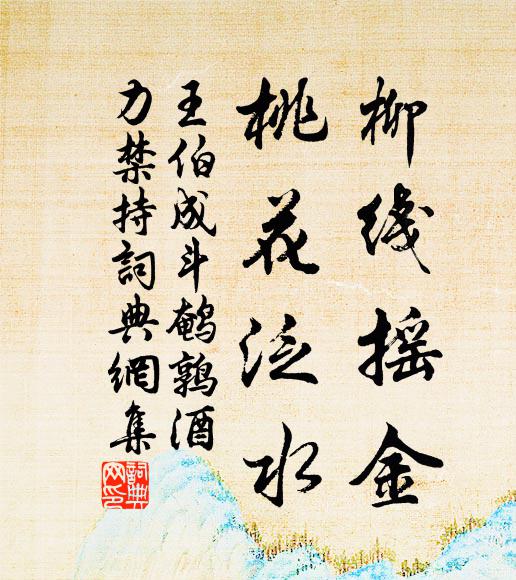 柳线摇金
桃花泛水
王伯成斗鹌鹑酒
力禁持詞典網集
詞典網印